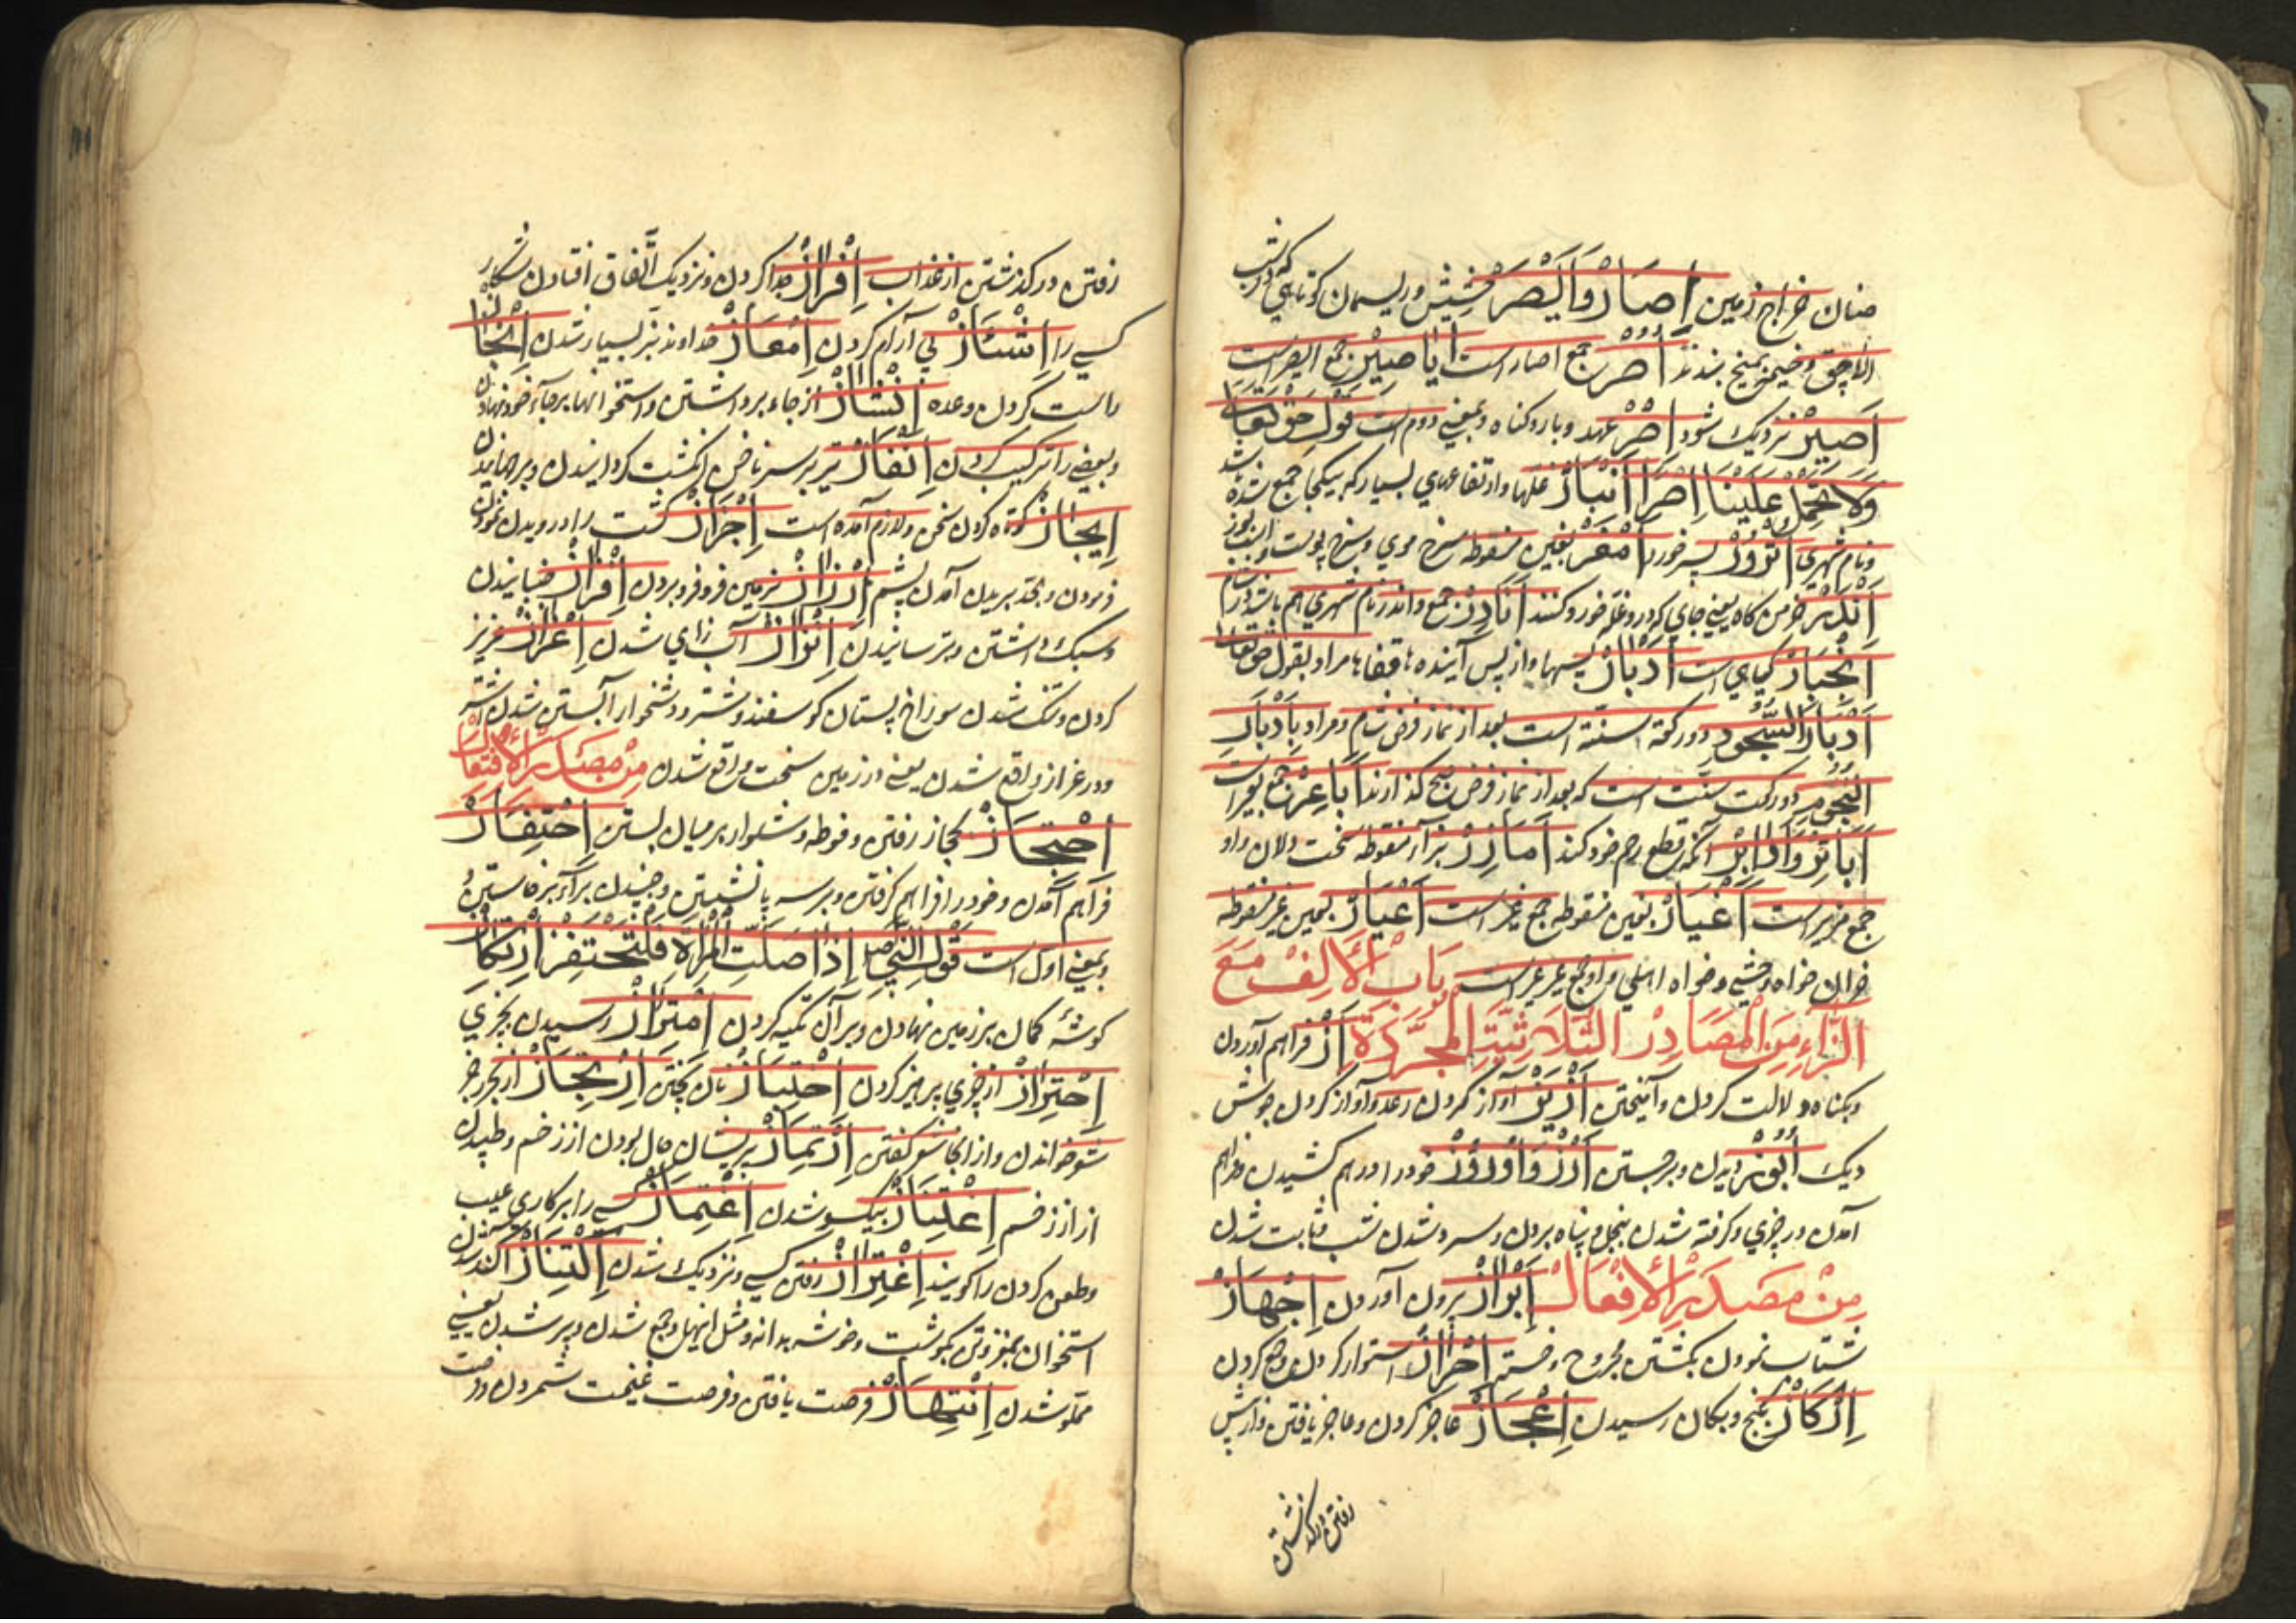 ضنان خراج زمین إِصَارْ وَالْيَصَرْ خشیش و ریسمان کوتاهی که در شیب
الاچق و خیمه بمیخ بندند أُصُرْ جمع اصار است أَيَاصِيْر جمع الیصر است
أَصِيْر نزدیک شود إِصْرْ عهد و بار و کناه و بمعنی دوم است قول حق تعالی
وَلَا تَحْمِلْ عَلَيْنَا إِصْرًا أَنْبَارْ غلها و ارتفاعهای بسیار که بیکجا جمع شده باشد
و نام شهری أَمْغَرْ بغین منقوطه سرخ موی و سرخ پوست
أَنْدَرْ خرمن کاه یعنی جای که درو غله خورد کنند أَنَادِرْ جمع و اندر نام شهری هم باشد در شام
أَنْجِبَارْ کیاهی است أَدْبَارْ پسها و از پس آینده ها قفاها مراد بقول حق تعالی
أَدْبَارَ السُّجُودِ دو رکعة سنّة است بعد از نماز فرض شام و مراد بِأَدْبَارِ
النُّجُومِ دو رکعت سنّت است که بعد از نماز فرض صبح کذارند أَبَاعِرْ جمع بعیر است
أَبَاتِرْ وَأَبْتَرْ آنکه قطع رحم خود کند أَمَازِرْ بزاء منقوطه سخت دلان و او
جمع مزیر است أَغْيَارْ بغین منقوطه جمع غیر است أَعْيَارْ بعین غیر منقوطه
خران خواه وحشی و خواه اهلی و او جمع عیر است بَابُ الْأَلِفْ مَعَ
الزَّاءِ مِنَ الْمَصَادِرْ الثَّلَاثِيَّةِ الْمُجَرَّدَةِ أَزّ فراهم آوردن
و بکناه دلالت کردن و آمیختن أَزِيْز آواز کردن رعد و آواز کردن جوش
دیک أُبُوْز دویدن و برجستن أَرْز وَأُرُوْزْ خود را درهم کشیدن و فراهم
آمدن در چیزی و کرفته شدن بنجل و پناه بردن و سرد شدن شب و ثابت شدن
مِنْ مَصْدَرِ الْأِفْعَالْ إِبْرَازْ برون آوردن إِجْهَازْ
شتاب نمودن بکشتن مجروح و خسته إِحْرَازْ استوار کردن و جمع کردن
إِرْكَازْ بکنج و بکان رسیدن إِعْجَازْ عاجز کردن و عاجز یافتن و از پیش
رفتن و درکذشتن
رفتن و درکذشتن از عذاب إِفْرَازْ جدا کردن و نزدیک اتّفاق افتادن شکار
کسی را إِشْئَازْ بی آرام کردن إِمْعَازْ خداوند بز بسیار شدن إِنْجَازْ
راست کردن وعده إِنْشَازْ از جاء برداشتن و استخوانها برجاء خود نهادن
و بعضی را ترکیب کردن إِنْفَازْ تیر بر سر ناخن انکشت کردانیدن و برجهانیدن
إِيْجَازْ کوتاه کردن سخن و لازم آمده است إِجْزَازْ کشت را درویدن نمودن
فرمودن و بحد بریدن آمدن پشم إِرْزَازْ بزمین فرو فرو بردن إِفْزَازْ جنبانیدن
و سبک داشتن و ترسانیدن إِنْزَازْ آب زای شدن إِعْزَازْ عزیز
کردن و تنک شدن سوراخ پستان کوسفند و شتر و دشخوار آبستن شدن شتر
و در عزاز واقع شدن یعنی در زمین سخت واقع شدن مِنْ مَصْدَرِ الْأِفْتِعَالْ
إِحْتِجَازْ بحجاز رفتن و فوطه و شلوار بر میان بستن إِحْتِفَازْ
فراهم آمدن و خود را فراهم کرفتن و بر سه پا نشستن و جنبیدن براء برخاستن و
بمعنی اول است قَوْلِ النَّبِيِّ إِذَا صَلَّتِ الْمَرْأَةُ فَلْتَحْتَفِزْ إِرْتِكَازْ
کوشهٔ کمان بر زمین نهادن و بر آن تکیه کردن إِمْتِرَازْ رسیدن بچیزی
إِحْتِرَازْ از چیزی پرهیز کردن إِخْتِبَازْ نان پختن إِرْتِجَازْ از بحر رجز
شعر خواندن و از انجا شعر کفتن إِرْتِمَازْ پریشان حال بودن از زخم و طپیدن
از زخم إِعْتِنَازْ بیکسو شدن إِغْتِمَازْ کسی را بر کاری عیب
و طعن کردن را کویند إِغْتِرَازْ رفتن کسی و نزدیک شدن إِكْتِنَازْ آکنده شدن
استخوان بمغز و تن بکوشت و خوشه بدانه و مثل اینها و جمع شدن و پر شدن یعنی
مملو شدن إِنْتِهَازْ فرصت یافتن و فرصت غنیمت شمردن و فرصت